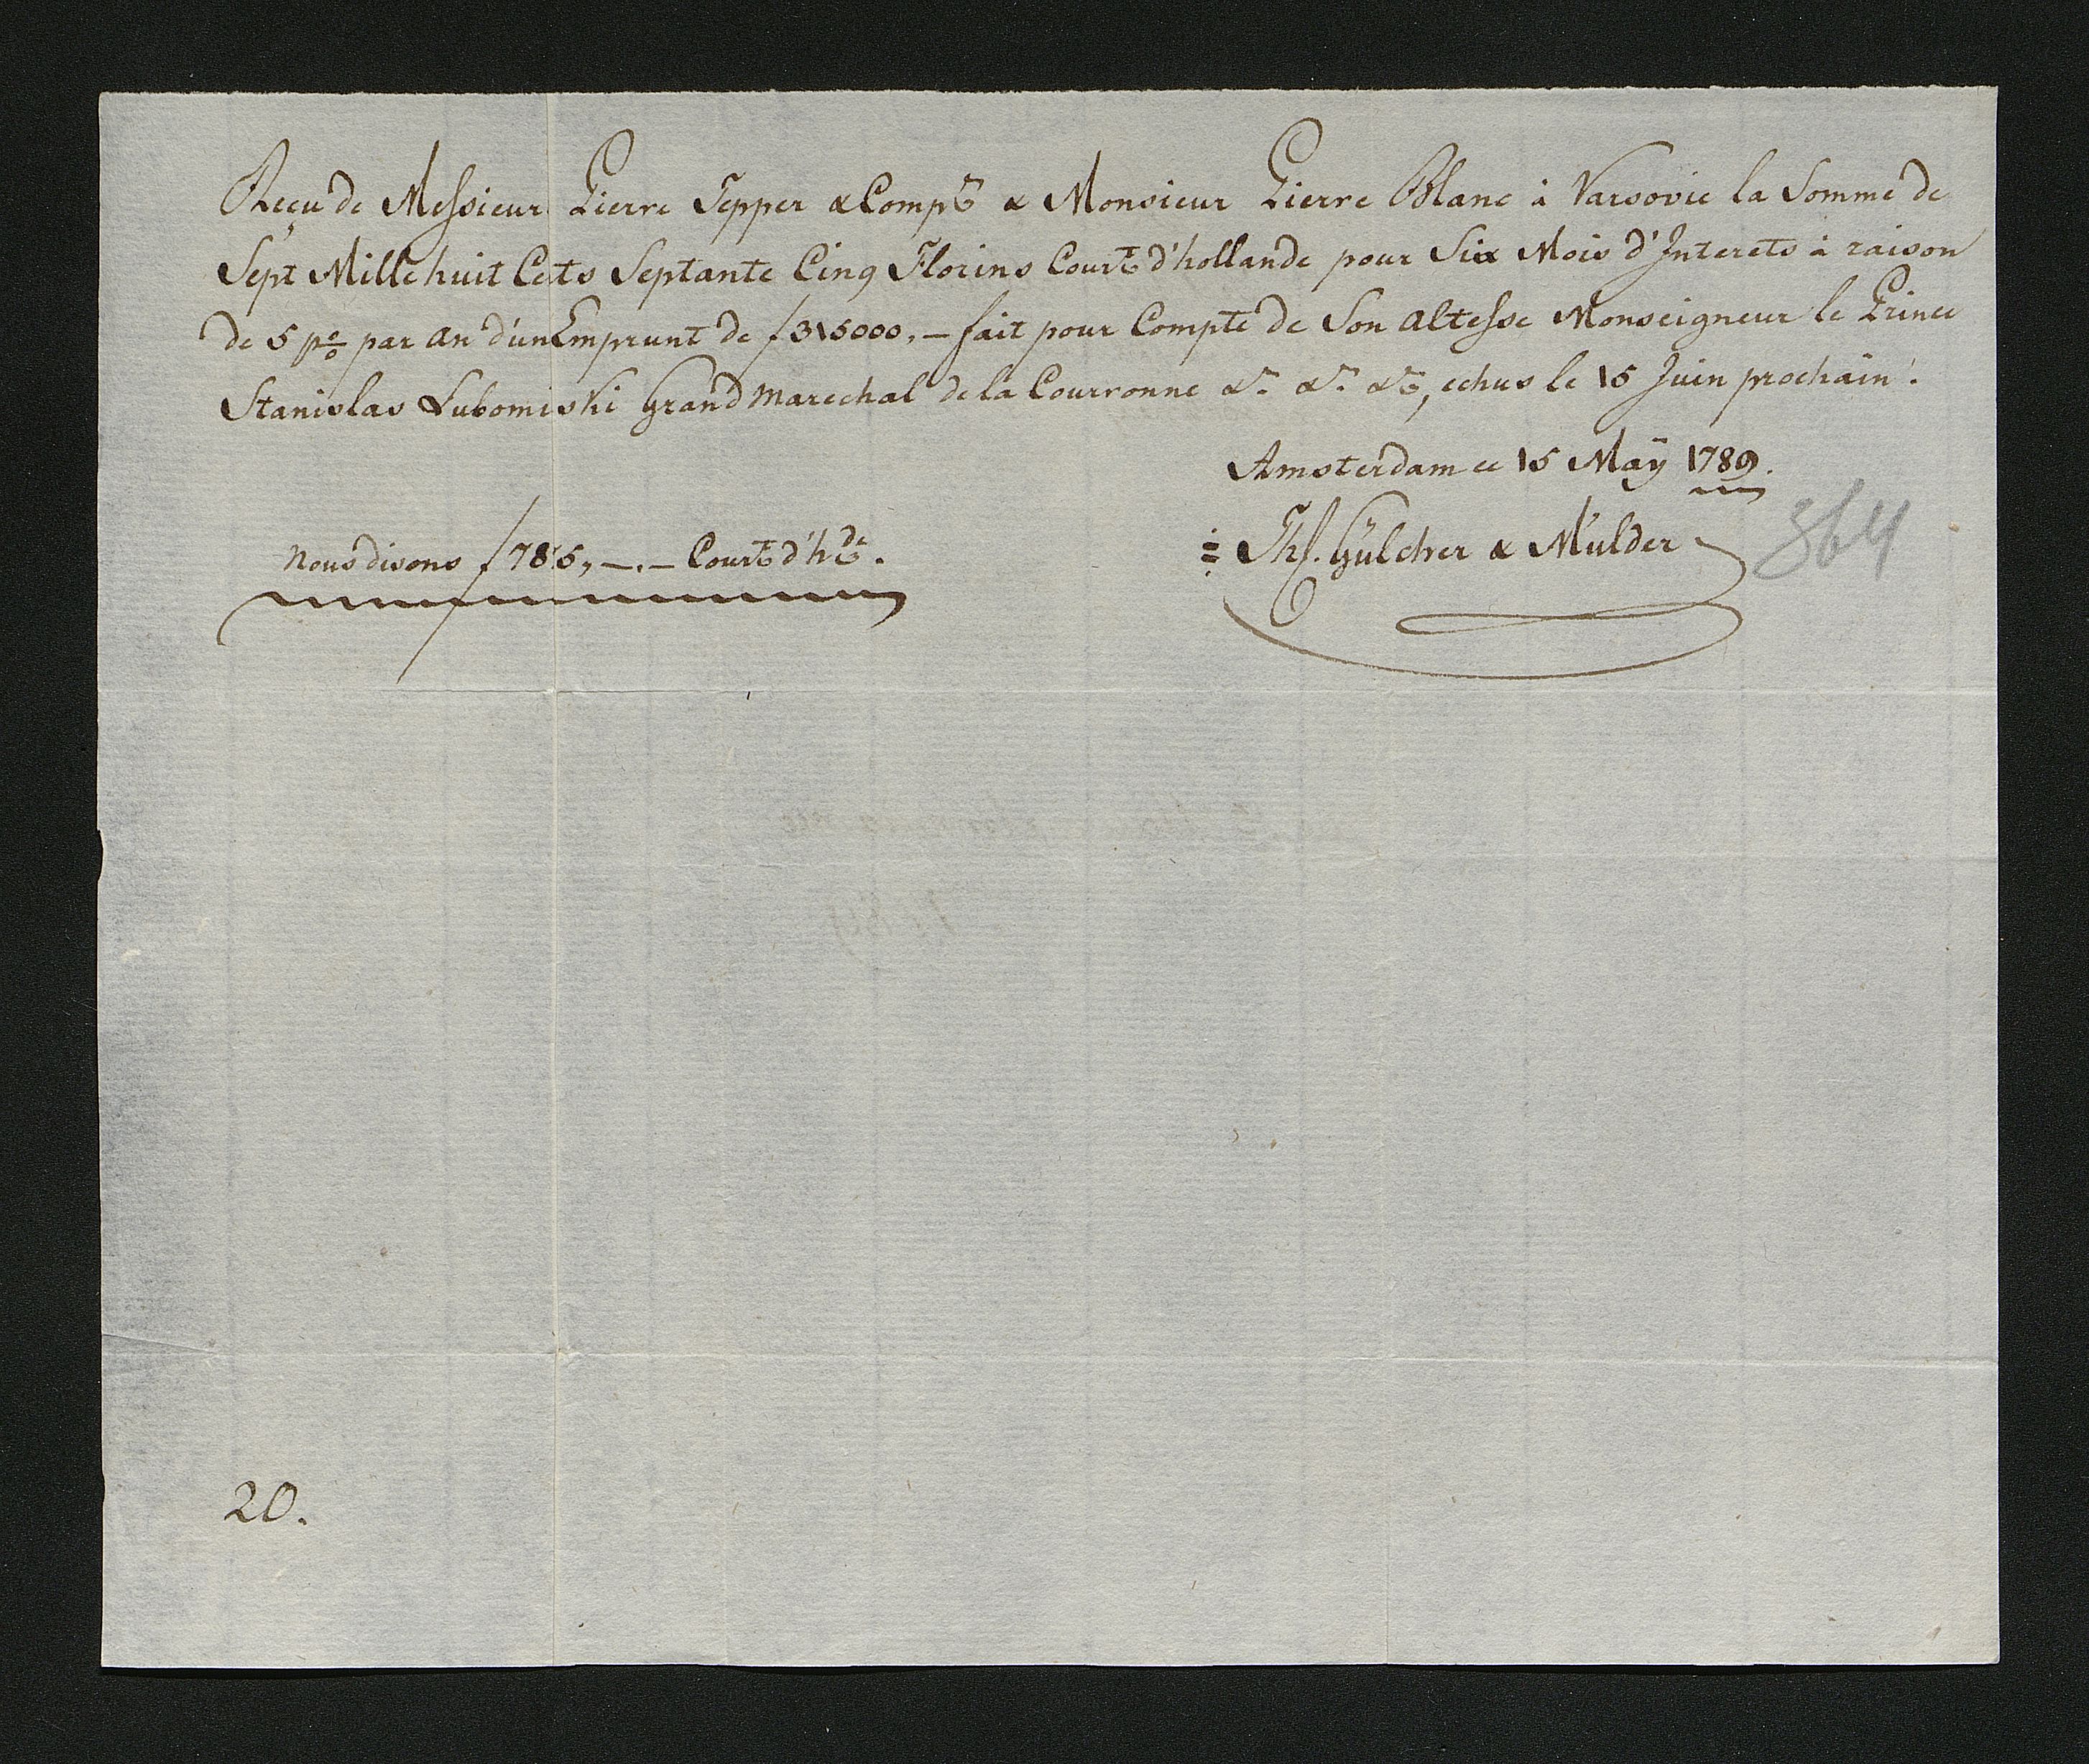 Reçu de Messieur Pierre Tepper & Compe & Monsieur Pierre Blanc à Varsovie la Somme de
Sept Mille huit Cets Septante Cinq Florins Court d'hollande pour Six Mois d'Interets à raison
de 5 pco par an d'un Emprunt de f 315000,— fait pour Compte de Son Altesse Monseigneur le Prince
Stanislas Lubomiski Grand Marechal de la Courronne &c &c &c, echus le 15 Juin prochain.
Amsterdam ce 15 Maÿ 1789.
Nous disons f 7875,—.— Court d'hde.
Th. Gülcher & Mulder
364
20.